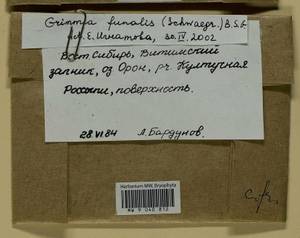 Grimmia funalis (Schwaegr.) B.S.G.
det. E. Игнатова, 20.IV.2002
Вост. Сибирь, Витимский
зап-ник, оз Орон, рч. Култучная
Россыпи, поверхность.
28 VI 84 Л. Бардунов.
Herbarium MW, Bryophyta
MW 9 040 812
c. fr.